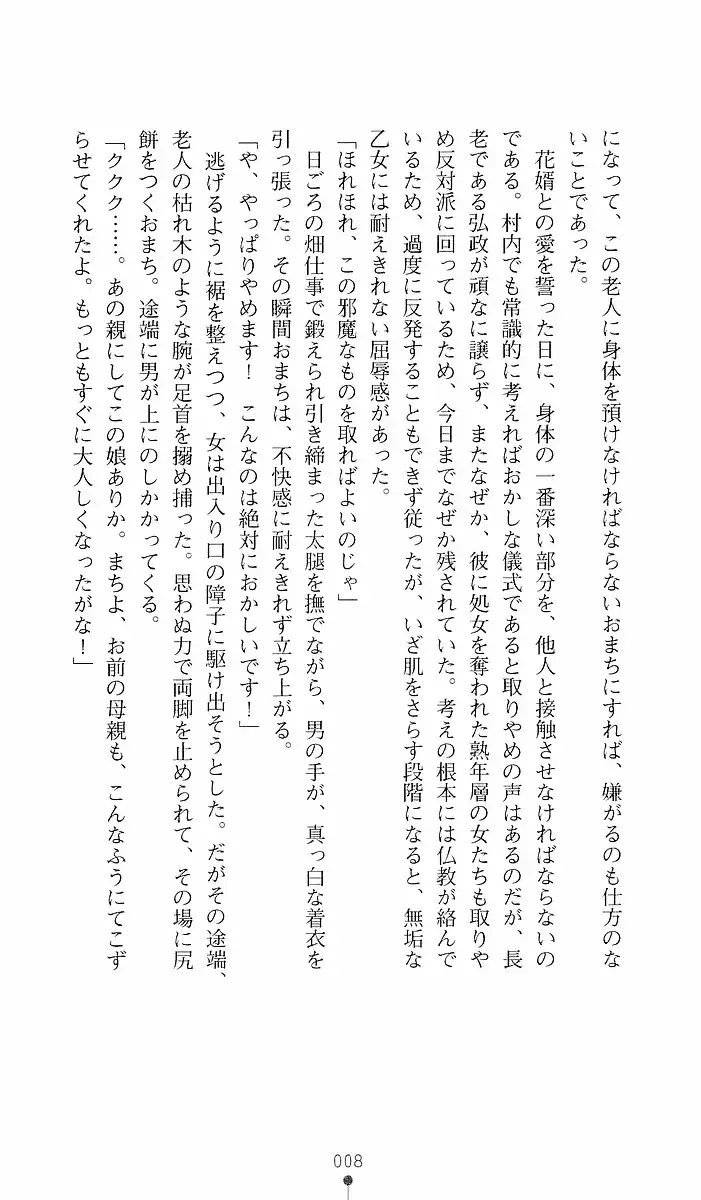 になって、この老人に身体を預けなければならないおまちにすれば、嫌がるのも仕方のな
いことであった。
　花婿との愛を誓った日に、身体の一番深い部分を、他人と接触させなければならないの
である。村内でも常識的に考えればおかしな儀式であると取りやめの声はあるのだが、長
老である弘政が頑なに譲らず、またなぜか、彼に処女を奪われた熟年層の女たちも取りや
め反対派に回っているため、今日までなぜか残されていた。考えの根本には仏教が絡んで
いるため、過度に反発することもできず従ったが、いざ肌をさらす段階になると、無垢な
乙女には耐えきれない屈辱感があった。
「ほれほれ、この邪魔なものを取ればよいのじゃ」
　日ごろの畑仕事で鍛えられ引き締まった太腿を撫でながら、男の手が、真っ白な着衣を
引っ張った。その瞬間おまちは、不快感に耐えきれず立ち上がる。
「や、やっぱりやめます！　こんなのは絶対におかしいです！」
　逃げるように裾を整えつつ、女は出入り口の障子に駆け出そうとした。だがその途端、
老人の枯れ木のような腕が足首を搦め捕った。思わぬ力で両脚を止められて、その場に尻
餅をつくおまち。途端に男が上にのしかかってくる。
「ククク……。あの親にしてこの娘ありか。まちよ、お前の母親も、こんなふうにてこず
らせてくれたよ。もっともすぐに大人しくなったがな！」
008